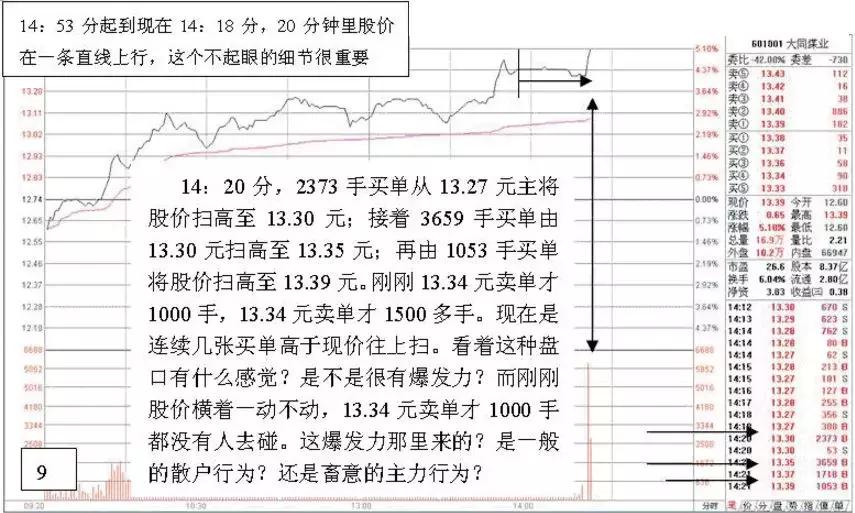 14：53 分起到现在 14：18 分，20 分钟里股价
在一条直线上行，这个不起眼的细节很重要
14：20 分，2373 手买单从 13.27 元主将
股价扫高至 13.30 元；接着 3659 手买单由
13.30 元扫高至 13.35 元；再由 1053 手买单
将股价扫高至 13.39 元。刚刚 13.34 元卖单才
1000 手，13.34 元卖单才 1500 多手。现在是
连续几张买单高于现价往上扫。看着这种盘
口有什么感觉？是不是很有爆发力？而刚刚
股价横着一动不动，13.34 元卖单才 1000 手
都没有人去碰。这爆发力那里来的？是一般
的散户行为？还是畜意的主力行为？
9
13.20
13.11
13.02
12.93
12.83
12.74
12.65
12.55
12.46
12.37
12.28
12.18
6688
5852
5016
4180
3344
2508
09:30
10:30
13:00
14:00
5.10%
4.37%
3.64%
2.92%
2.19%
1.46%
0.73%
0.00%
0.73%
1.46%
2.19%
2.92%
3.64%
4.37%
6688
5852
5016
4180
3344
2508
1672
836
分时
601001 大同煤业
委比 -42.00% 委差 -730
卖⑤ 13.43 112
卖④ 13.42 16
卖③ 13.41 38
卖② 13.40 886
卖① 13.39 182
买① 13.38 35
买② 13.37 11
买③ 13.36 58
买④ 13.34 90
买⑤ 13.33 318
现价 13.39 今开 12.60
涨跌 0.65 最高 13.39
涨幅 5.10% 最低 12.60
总量 16.9万 量比 2.21
外盘 10.2万 内盘 66947
市盈 26.6 股本 8.37亿
换手 6.04% 流通 2.80亿
净资 3.83 收益㈢ 0.38
14:12 13.30 670 S
14:13 13.29 623 S
14:14 13.28 762 S
14:14 13.28 80 B
14:14 13.27 62 S
14:15 13.28 213 B
14:15 13.27 181 S
14:16 13.27 127 S
14:17 13.28 255 B
14:18 13.27 356 S
14:18 13.27 308 B
14:20 13.30 2373 B
14:20 13.30 53 S
13.35 3659 B
14:21 13.37 1718 B
14:21 13.39 1053 B
笔 价 分 盘 势 指 值 单